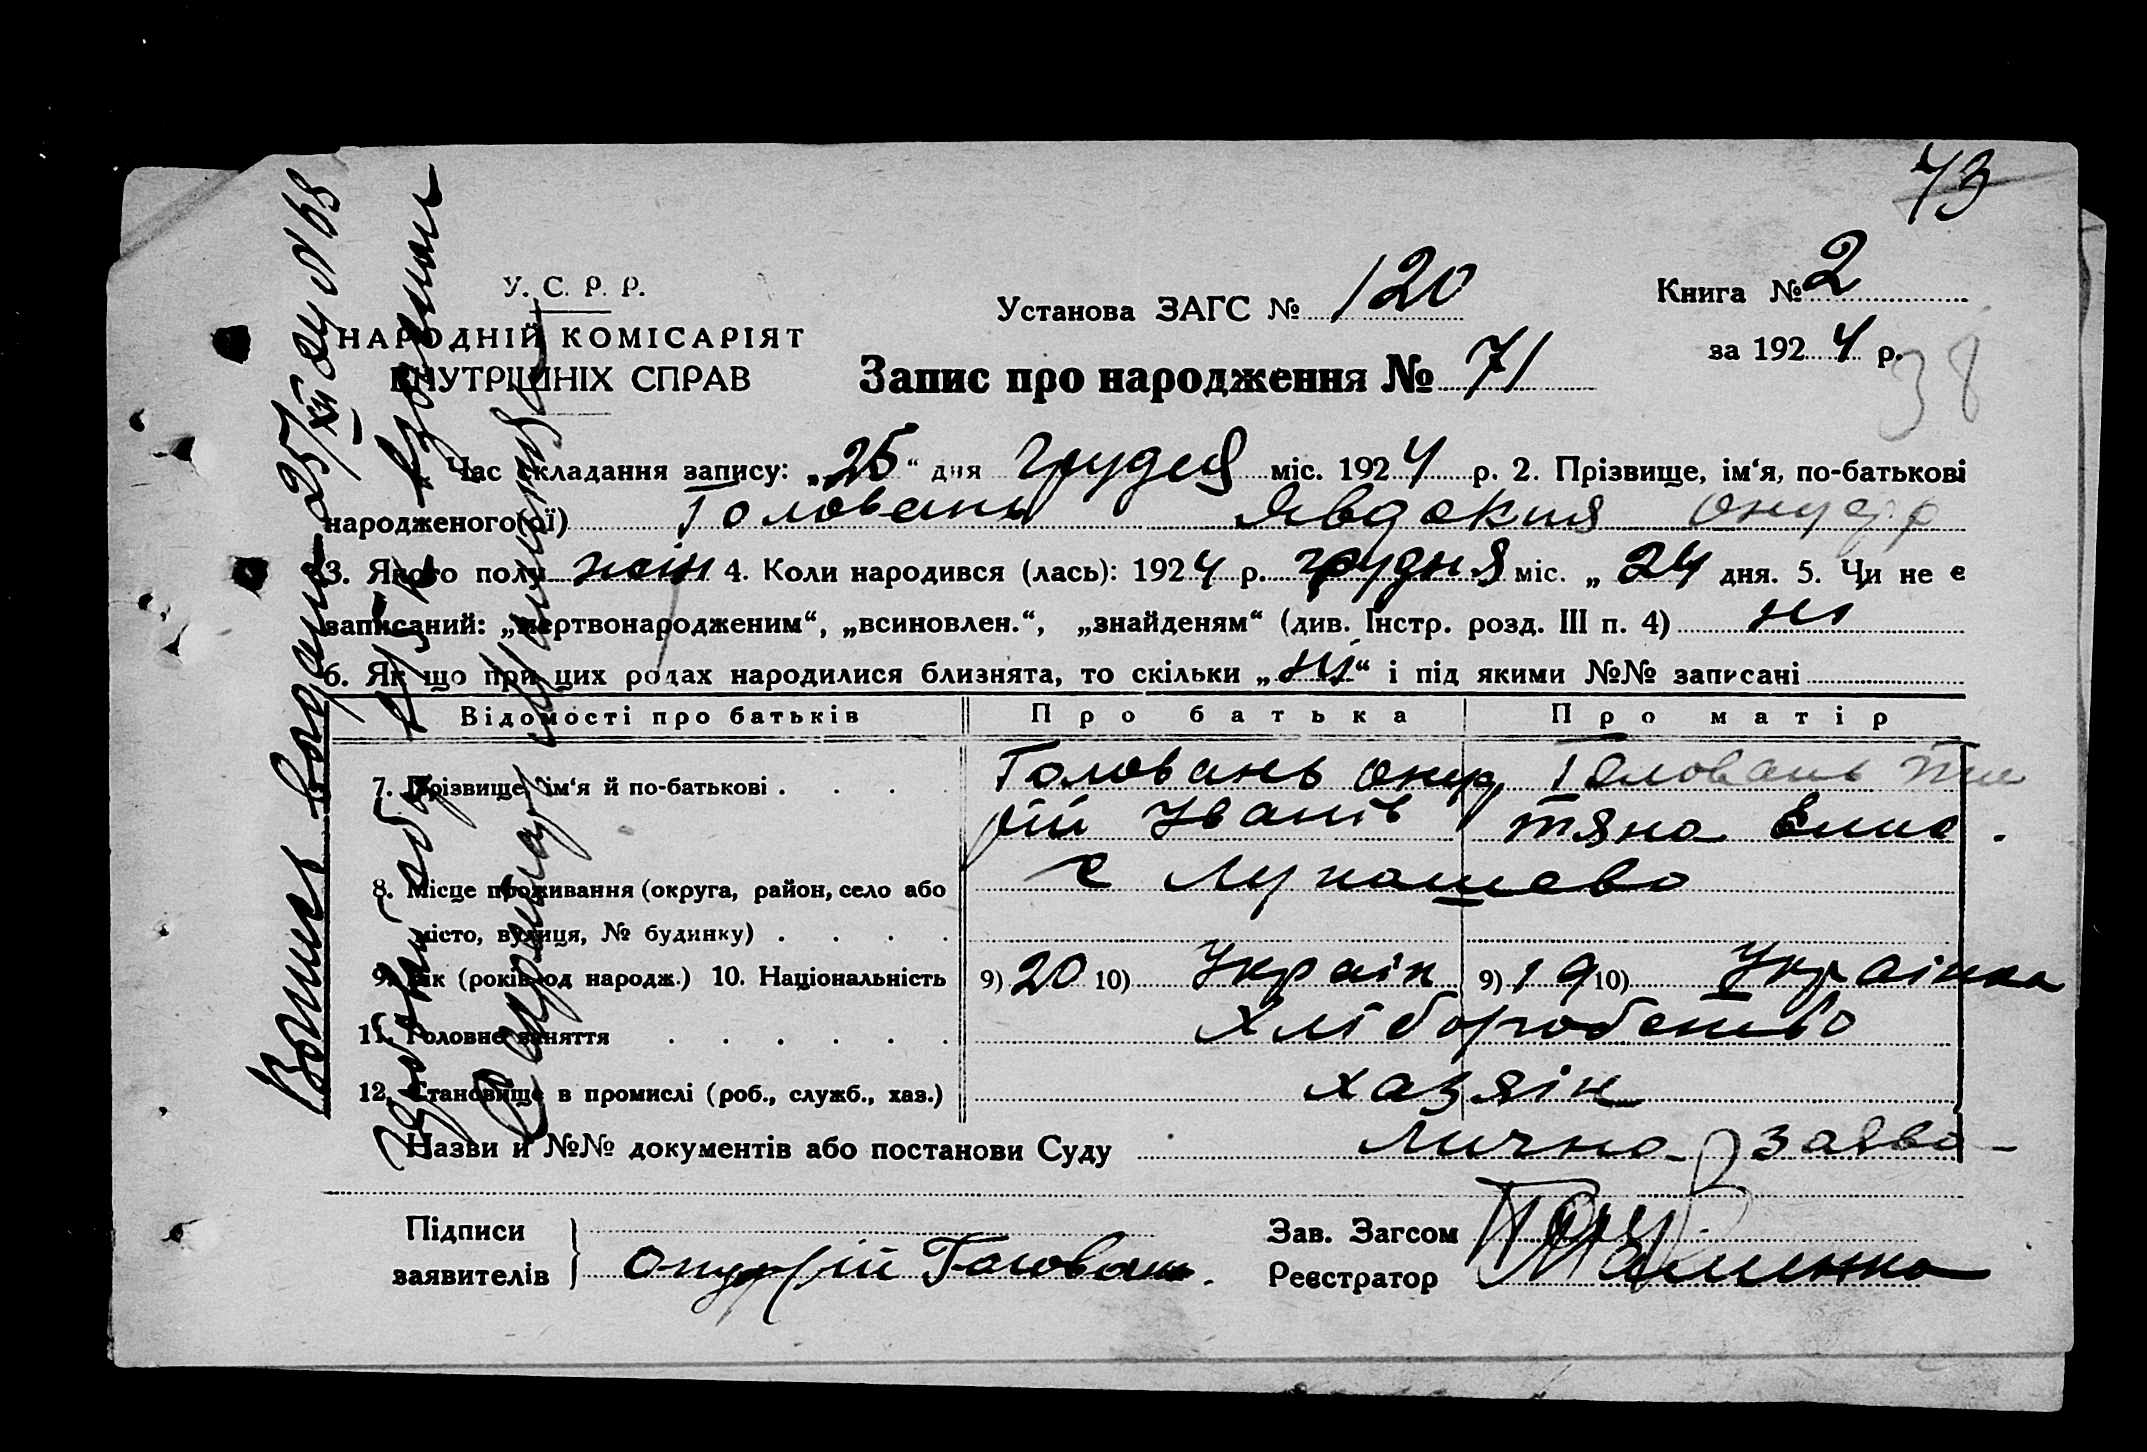 73
У. С. Р. Р.
НАРОДНІЙ КОМІСАРІЯТ
ВНУТРІШНІХ СПРАВ
Установа ЗАГС № 120
Книга № 2
за 1924 р.
38
Запис про народження № 71
Час складання запису: „25“ дня грудня міс. 1924 р. 2. Прізвище, ім‘я, по-батькові
народженого(ої) Головань Явдокия Онуфр
3. Якого полу жін 4. Коли народився (лась): 1924 р. грудня міс. „ 24 дня. 5. Чи не є
записаний: „мертвонародженим“, „всиновлен.“, „знайденям“ (див. Інстр. розд. III п. 4) ні
6. Як що при цих родах народилися близнята, то скільки „ні“ і під якими №№ записані
Відомості про батьків Про батька Про матір
7. Прізвище, ім‘я й по-батькові . . . . Головань Онуф Головань
рій Іванів тяна
8. Місце проживання (округа, район, село або с Лукашево
місто, вулиця, № будинку) . . . .
9. Вік (років од народж.) 10. Національність 9) 20 10) Україн 9) 19 10) Українка
11. Головне заняття . . . . . . Хліборобство
12. Становище в промислі (роб., служб., хаз.) хазяін
Назви й №№ документів або постанови Суду Лично заява
Підписи
заявителів Онуфрій Головань.
Зав. Загсом
Реєстратор
Выпись выдана 25/XII 24 № 68